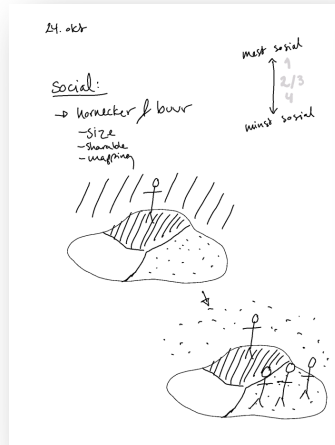 24. okt
mest sosial
1
2/3
4
minst sosial
Social:
→ Hornecker & buur
-size
-sharable
-mapping